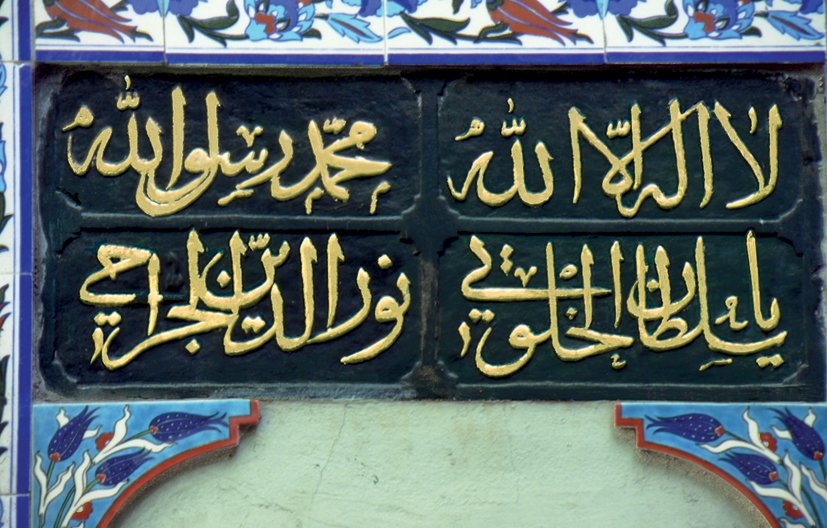 لا اله الا الله
محمد رسول الله
يا سلطان الخلوتي
نور الدين الجراحي